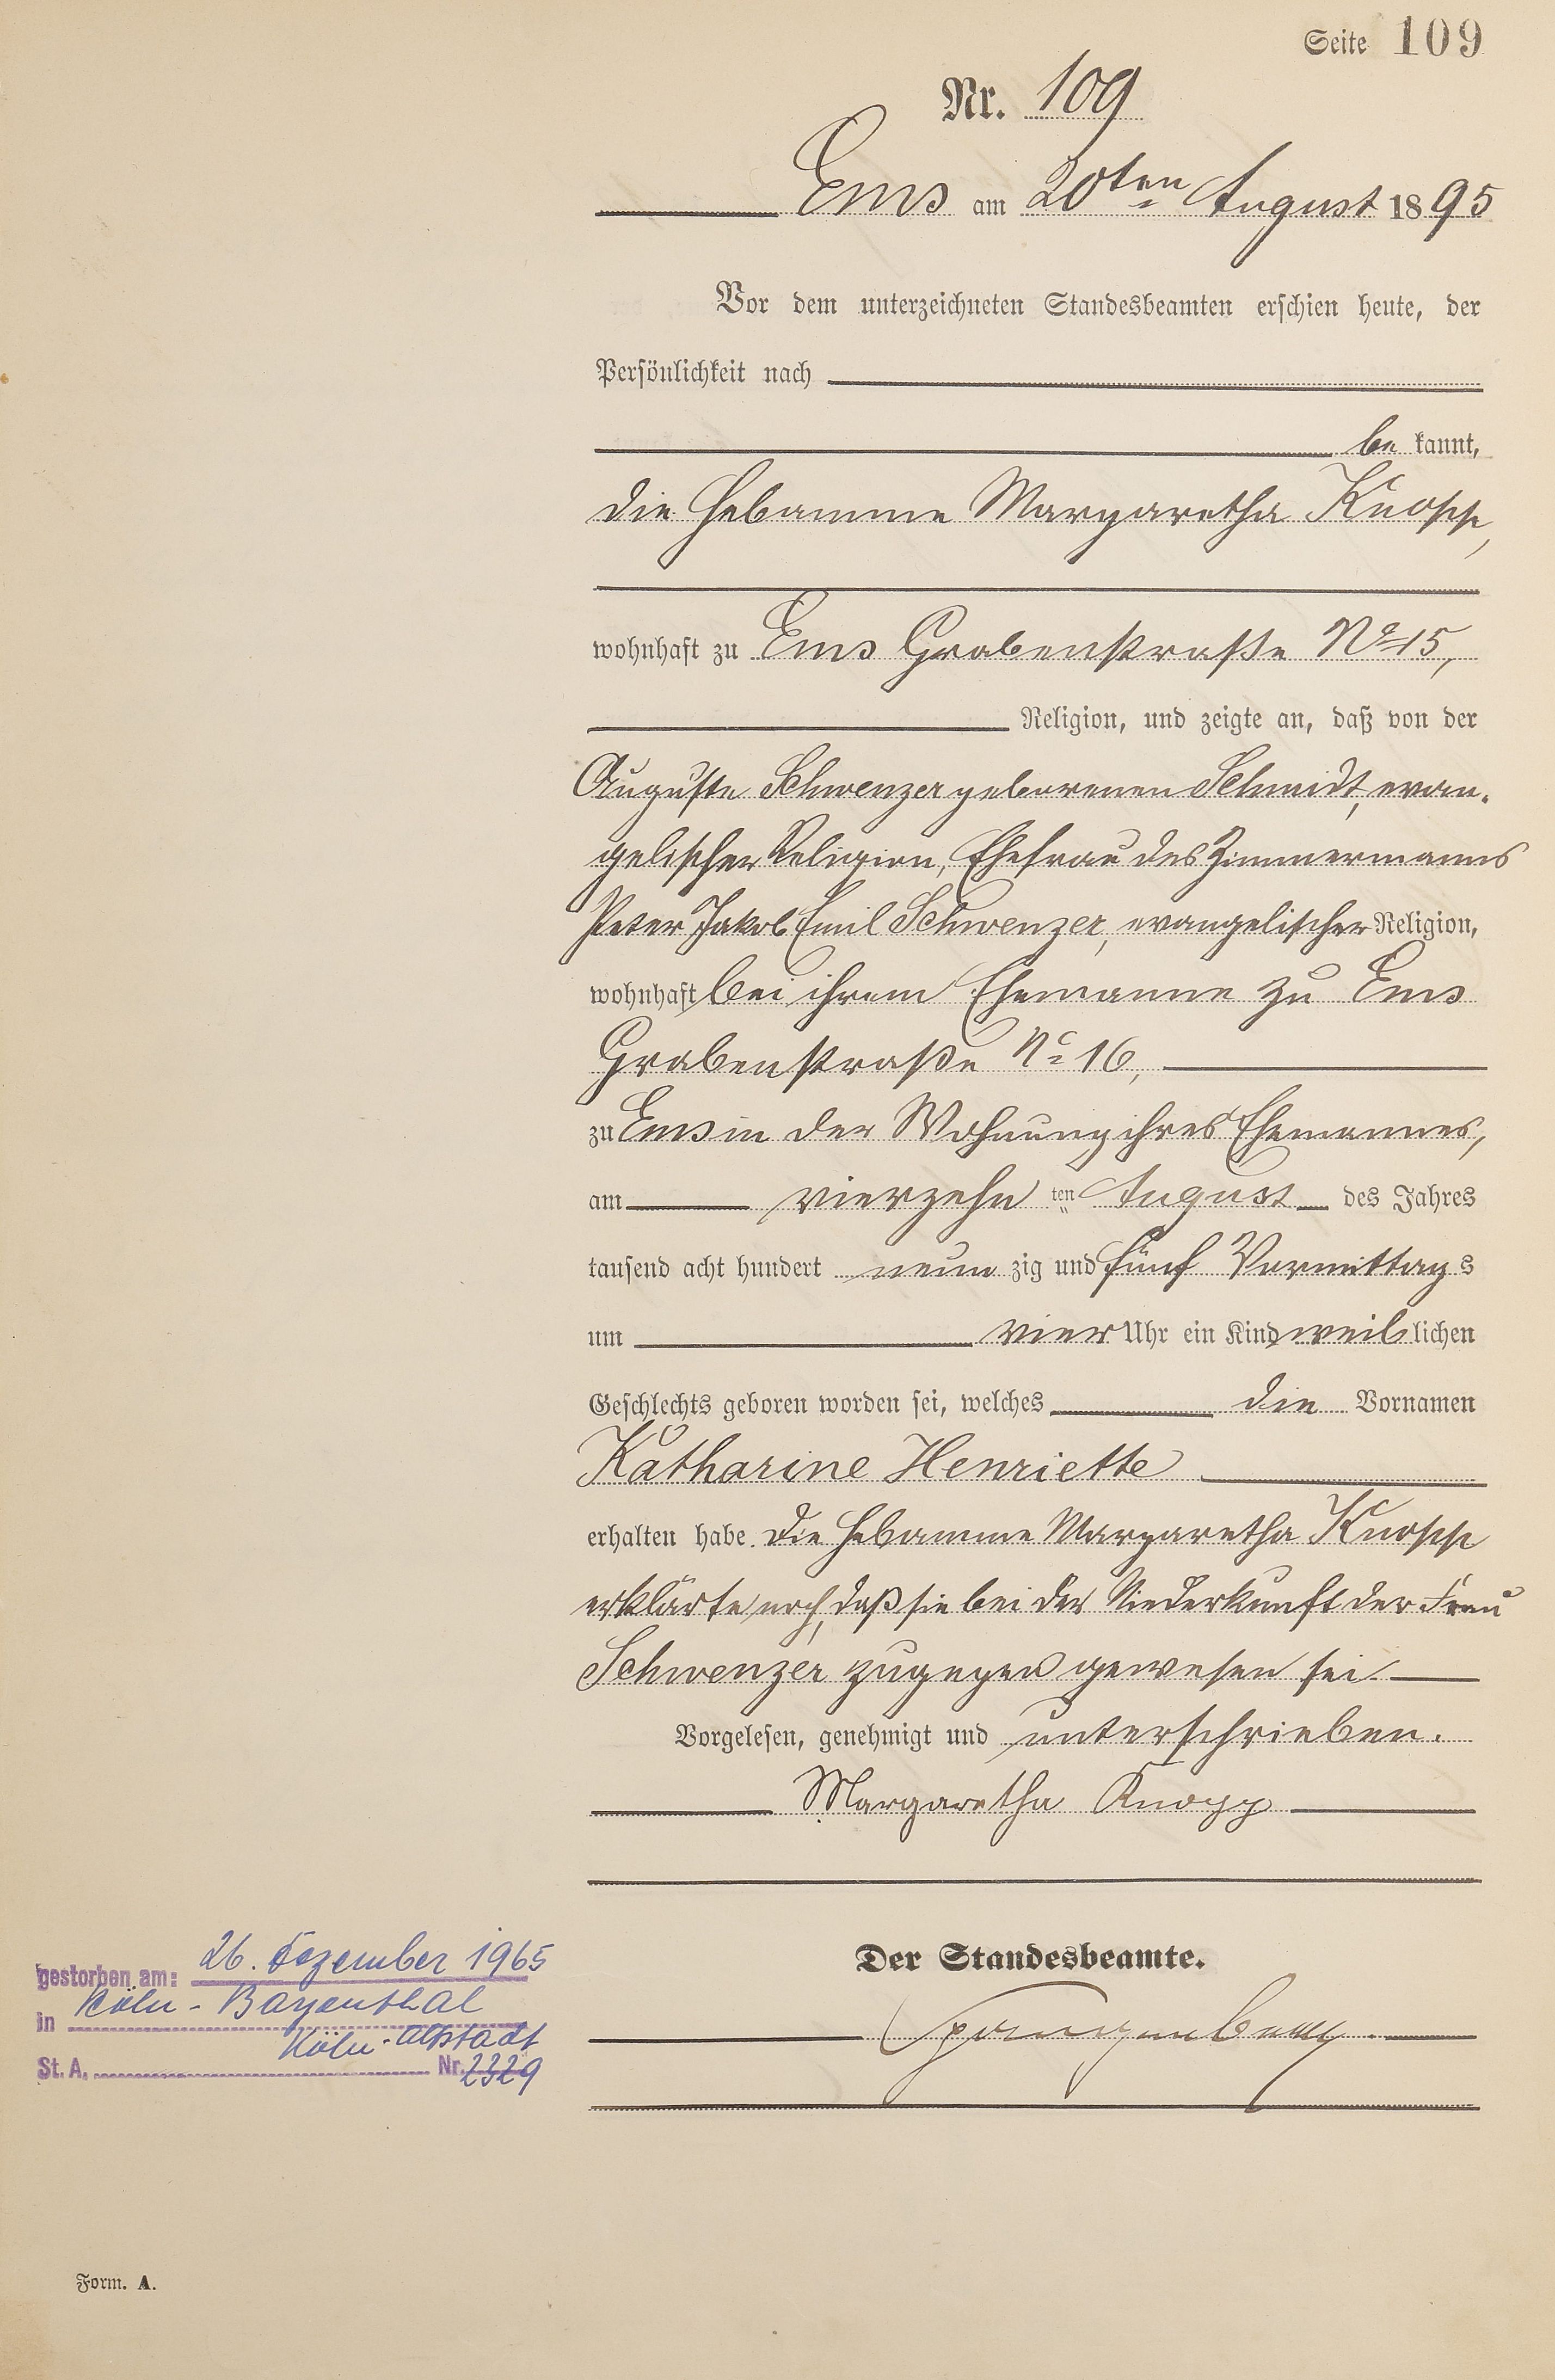 Seite 109
Nr. 109
Ems am 20ten August 1895
Vor dem unterzeichneten Standesbeamten erschien heute, der
Persönlichkeit nach
be kannt,
die Hebamme Margaretha Knopp,
wohnhaft zu Ems Grabenstraße No 15,
Religion, und zeigte an, daß von der
Auguste Schwenzer geborenen Schmidt, evan-
gelischer Religion, Ehefrau des Zimmermanns
Peter Jakob Emil Schwenzer, evangelischer Religion,
wohnhaft bei ihrem Ehemanne zu Ems
Grabenstraße No 16,
zu Ems in der Wohnung ihres Ehemannes,
am vierzehn ten August des Jahres
tausend acht hundert neun zig und fünf Vormittags
um vier Uhr ein Kind weiblichen
Geschlechts geboren worden sei, welches die Vornamen
Katharine Henriette
erhalten habe. Die Hebamme Margaretha Knopp
erklärte noch, daß sie bei der Niederkunft der Frau
Schwenzer zugegen gewesen sei.
Vorgelesen, genehmigt und unterschrieben.
Margaretha Knopp
Der Standesbeamte.
Spangenberg
gestorben am: 26. Dezember 1965
in Köln-Bayenthal
Köln-Altstadt
St. A. Nr. 2329
Form. A.